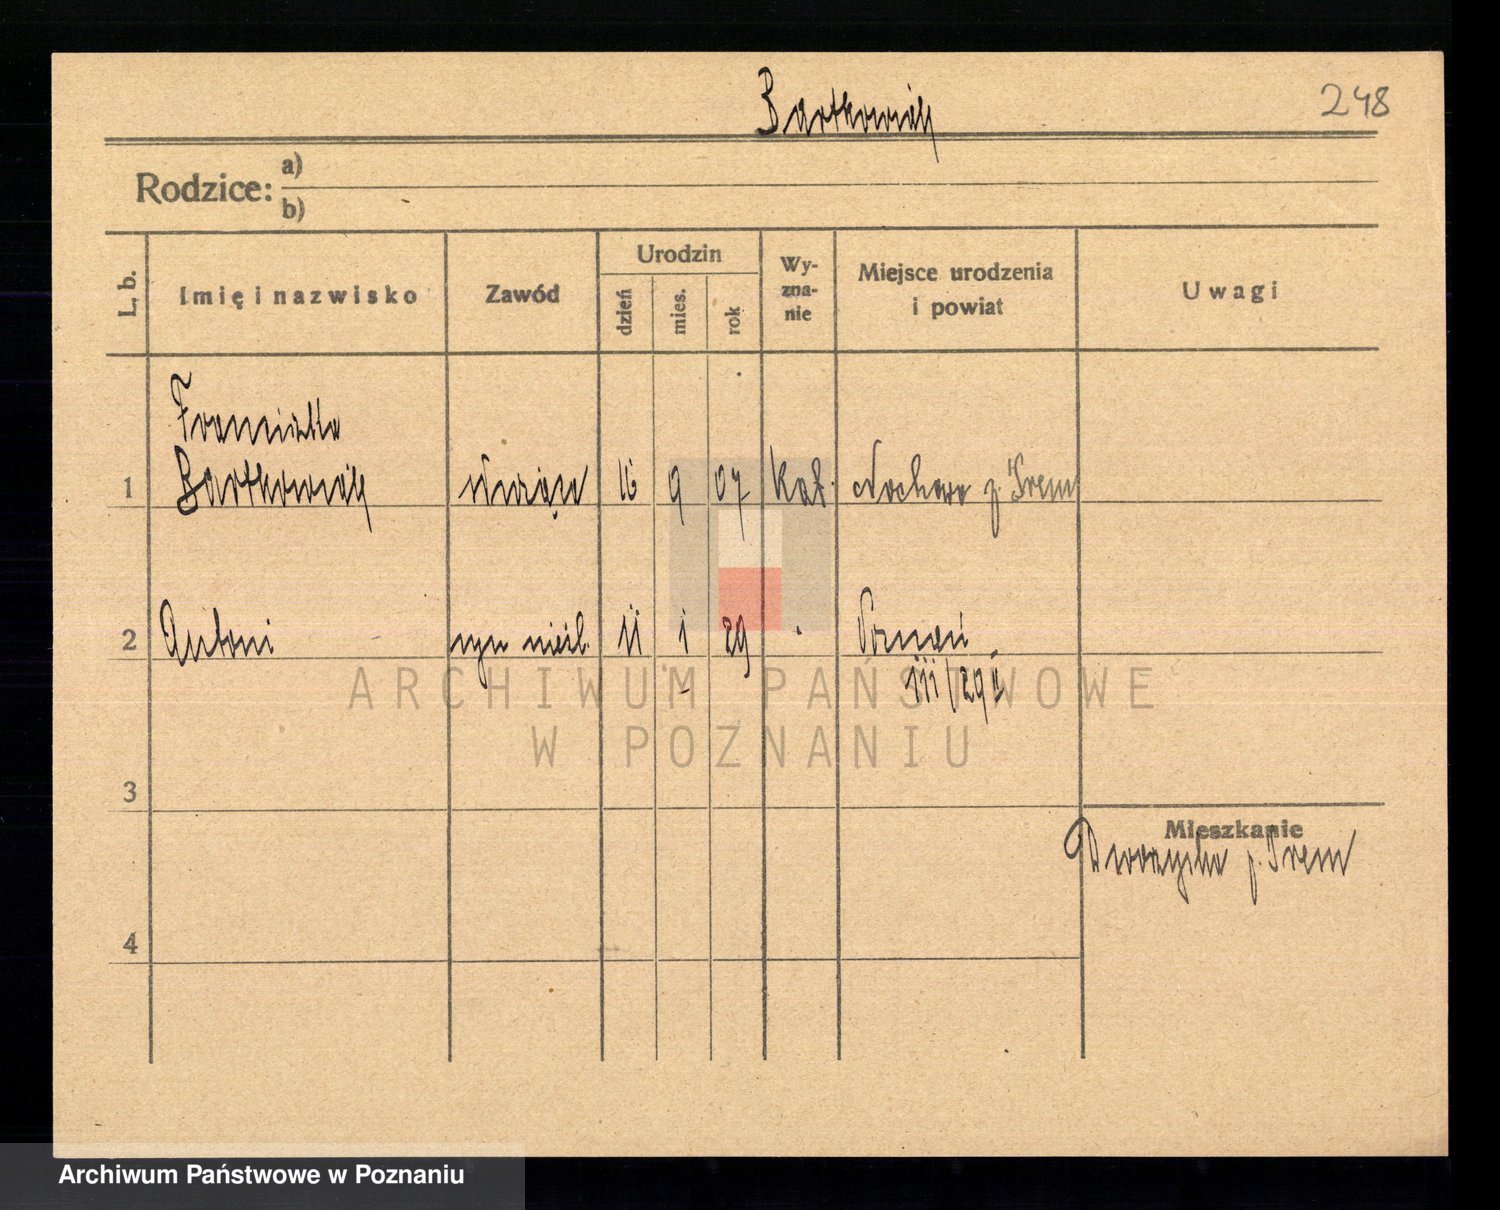 Bartkowiak
248
Rodzice: a)
b)
L. b.
Imię i nazwisko
Zawód
Urodzin
dzień
mies.
rok
Wy-
zna-
nie
Miejsce urodzenia
i powiat
Uwagi
Franciszka
1 Bartkowiak służąca 16 9 07 kat. Nochowo p. Śrem
2 Antoni syn nieśl. 11 1 29 Poznań
III/29
ARCHIWUM PAŃSTWOWE
W POZNANIU
3
Mieszkanie
p. Śrem
4
Archiwum Państwowe w Poznaniu